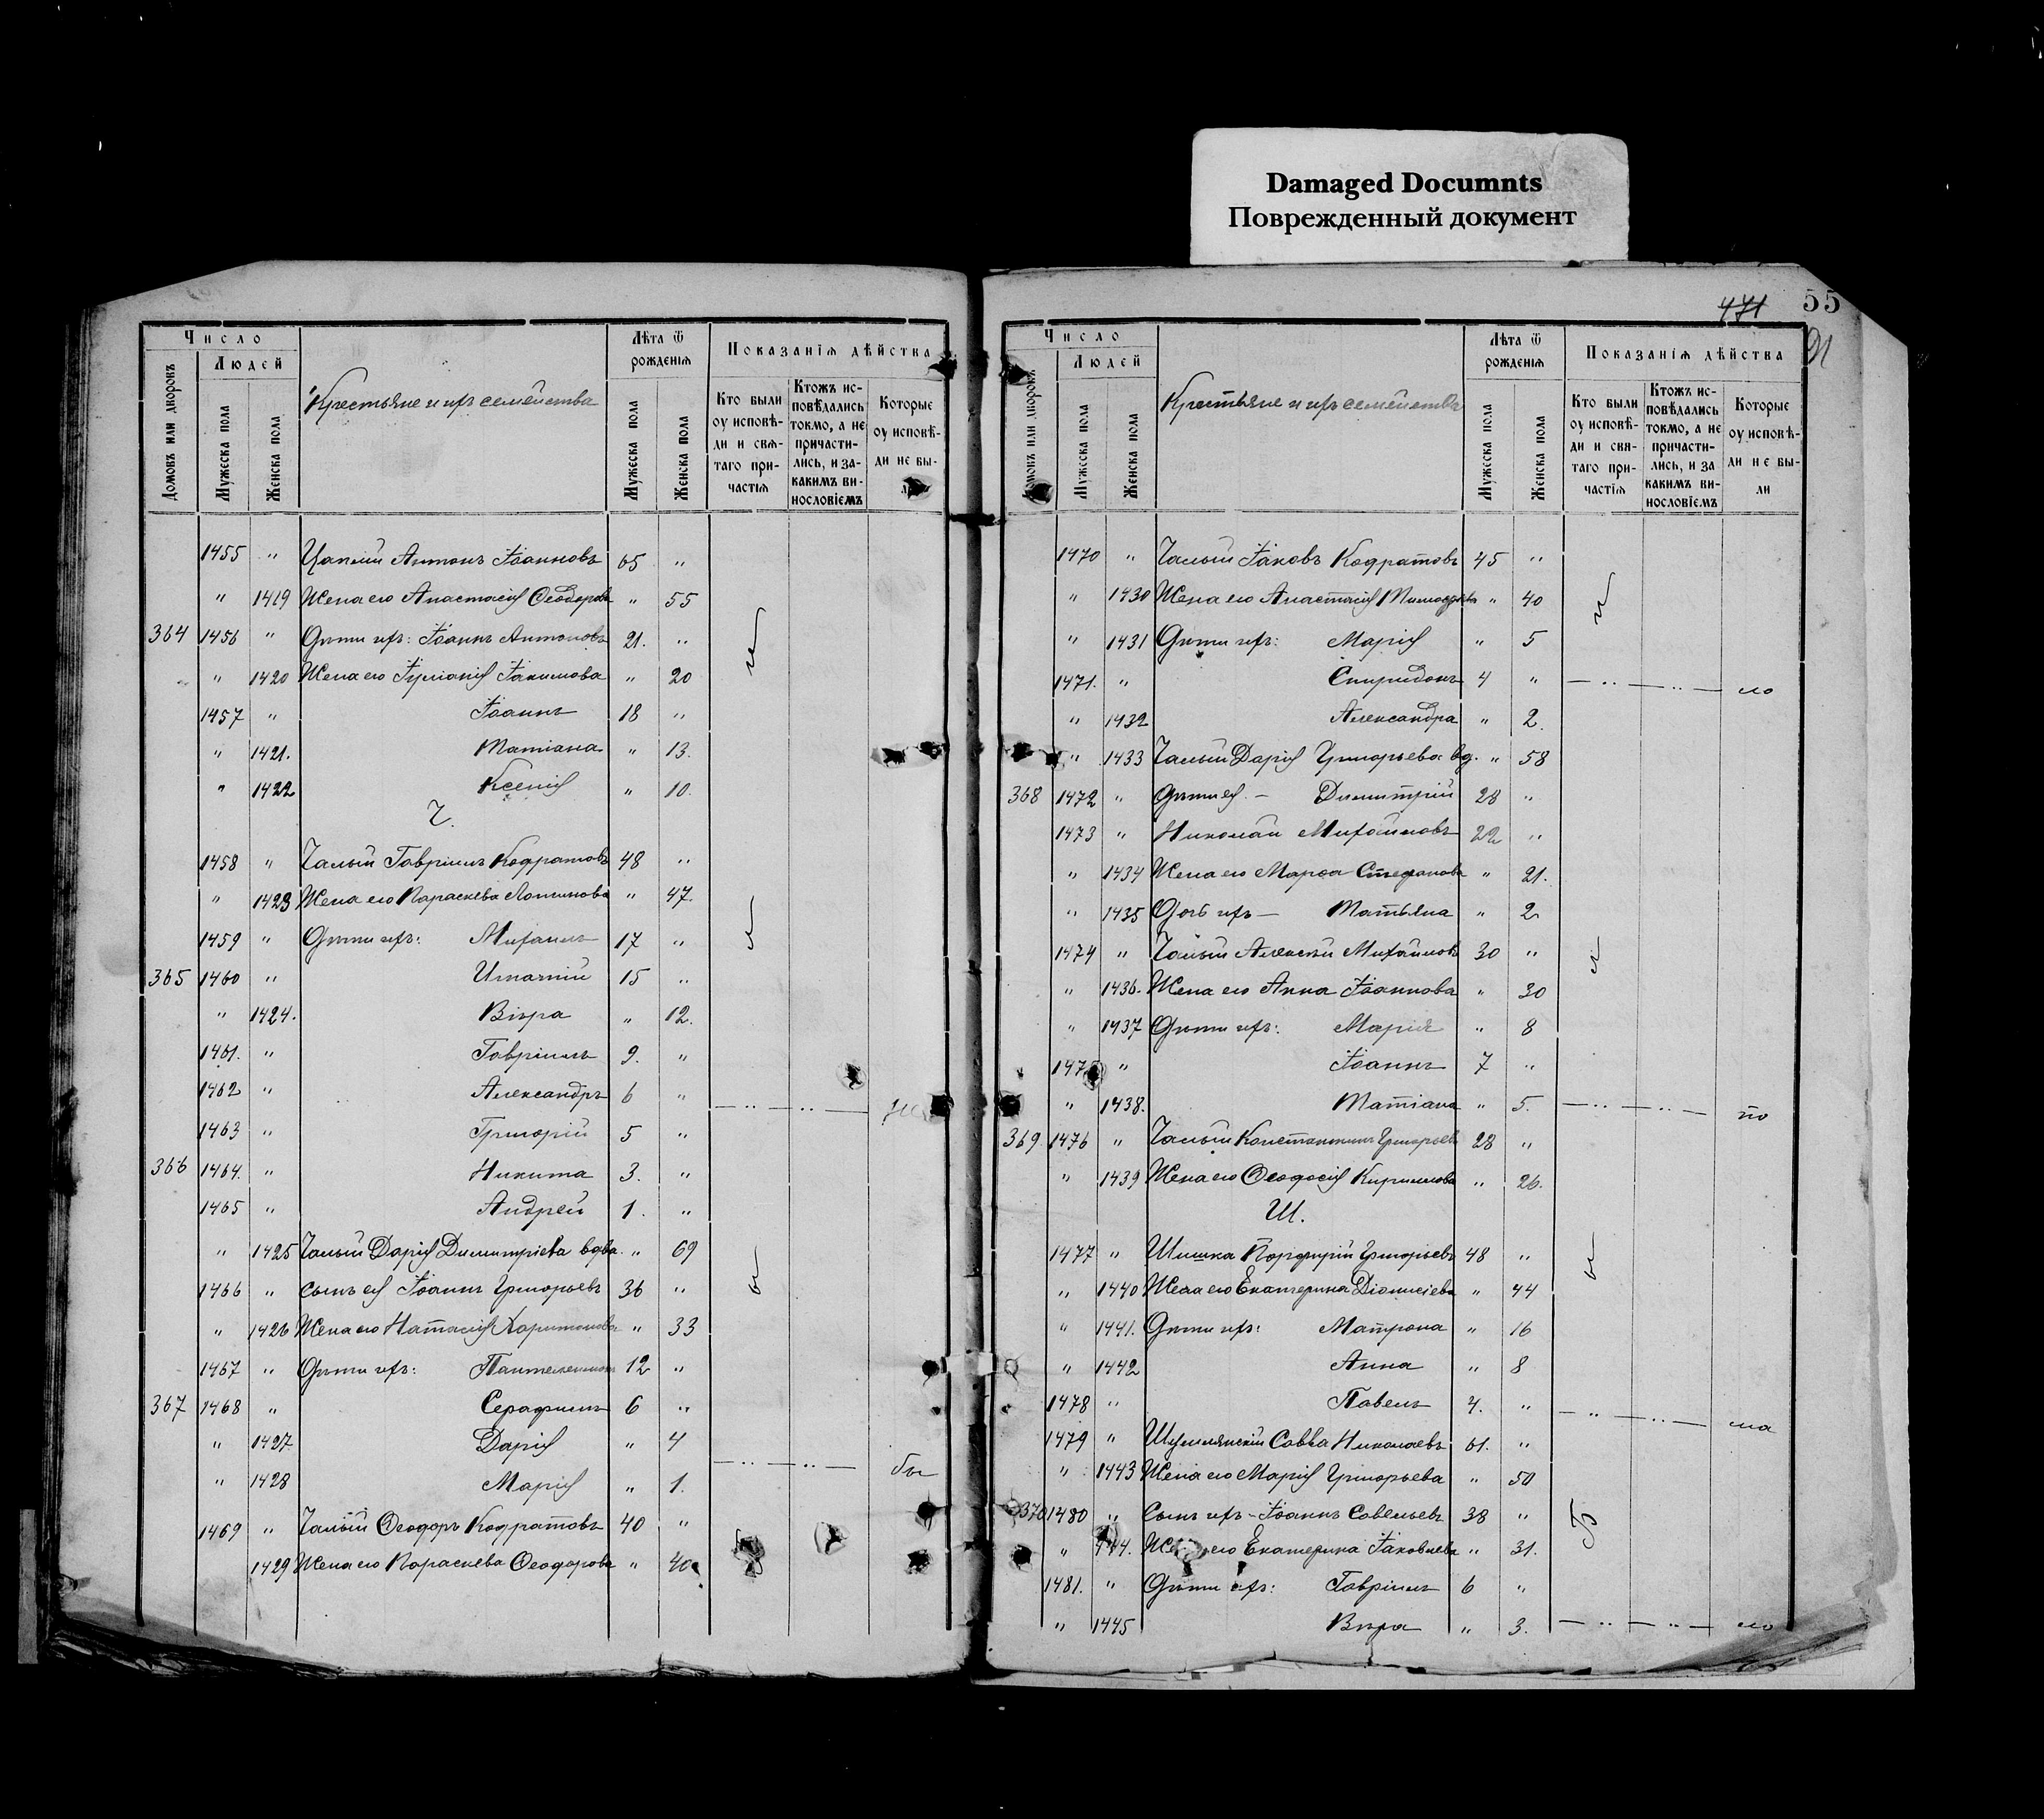 Damaged Documnts
Поврежденный документ
Число
Людей
Домовъ или дворовъ
Мужеска пола
Женска пола
Крестьяне и ихъ семейства
Лѣта ѿ рожденія
Мужеска пола
Женска пола
Показанія дѣйства
Кто были оу исповѣ-
ди и свя-
таго при-
частія
Ктожъ ис-
повѣдались
токмо, а не
причасти-
лись, и за-
какимъ ви-
нословіемъ
Которые
оу исповѣ-
ди не бы-
1455 " Цапый Антонъ Іоанновъ 65 "
" 1419 Жена его Анастасія Ѳеодорова " 55
364 1456 " Дѣти ихъ: Іоаннъ Антоновъ 21. "
" 1420 Жена его Іуліанія Іакимова " 20
1457 " Іоаннъ 18 "
" 1421. Татіана " 13.
" 1422 Ксенія " 10.
Ч.
1458 " Чалый Гавріилъ Кодратовъ 48 "
" 1423 Жена его Параскева " 47.
1459 " Дѣти ихъ: Михаилъ 17 "
365 1460 " Игнатій 15 "
" 1424. Вѣра " 12.
1461. " Гавріилъ 9. "
1462 " Александръ 6 " — " — " —
1463 " Григорій 5 "
366 1464. " Никита 3. "
1465 " Андрей 1. "
" 1425 Чалый Дарія Димитріева вдва. " 69
1466 " Сынъ ея Іоаннъ Григорьевъ 36 "
" 1426 Жена его Наталія Харитонова " 33
1467 " Дѣти ихъ: Пантелеимонъ 12 "
367 1468 " Серафимъ 6 "
" 1427 Дарія " 4
" 1428 Марія " 1. — " — " — бы
1469 " Чалый Ѳеодоръ Кодратовъ 40 "
1429 Жена его Параскева Ѳеодорова " 40
471 55
91
Число
Людей
Домовъ или дворовъ
Мужеска пола
Женска пола
Крестьяне и ихъ семейства
Лѣта ѿ рожденія
Мужеска пола
Женска пола
Показанія дѣйства
Кто были
оу исповѣ-
ди и свя-
таго при-
частія
Ктожъ ис-
повѣдались
токмо, а не
причасти-
лись, и за
какимъ ви-
нословіемъ
Которые
оу исповѣ-
ди не бы-
ли
1470 " Чалый Іаковъ Кодратовъ 45 "
" 1430 Жена его Анастасія " 40
" 1431 Дѣти ихъ: Марія " 5
1471. " Спиридонъ 4 " — " — " — ло
" 1432 Александра " 2.
" 1433 Чалый Дарія Григорьева вд. " 58
368 1472 " Дѣти ея — Димитрій 28 "
1473 " Николай Михайловъ 22 "
" 1434 Жена его Марѳа Стефанова " 21.
" 1435 Дочь ихъ — Татьяна " 2
1474 " Чалый Алексѣй Михайловъ 30 "
" 1436. Жена его Анна Іоаннова " 30
" 1437 Дѣти ихъ: Марія " 8
1475 " Іоаннъ 7 "
" 1438. Татіана " 5. — " — " — по
369. 1476 " Чалый Константинъ Григорьевъ 28 "
" 1439 Жена его Ѳеодосія Кириллова " 26.
Ш.
1477 " Шишка Порфирій Григорьевъ 48 "
" 1440 Жена его Екатерина Діонисіева " 44
" 1441. Дѣти ихъ: Матрона " 16
" 1442 Анна " 8
1478 " Павелъ 4. " — " — " — ма
1479 " Шумлянскій Савва Николаевъ 61. "
" 1443 Жена его Марія Григорьева " 50
370 1480 " Сынъ ихъ — Іоаннъ Савельевъ 38 "
" Жена его Екатерина Іаковлева " 31.
1481. " Дѣти ихъ: Гавріилъ 6 "
" 1445 Вѣра " 3. — " — " — ло